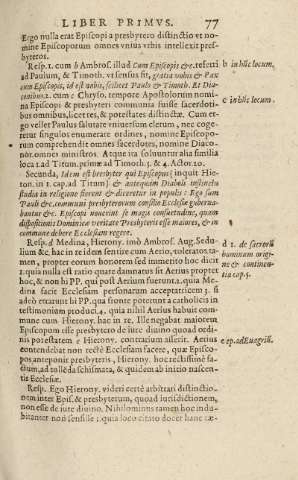 LIBER PRIMVS. 77
Ergo nulla erat Episcopi a presbytero distinctio et no-
mine Episcoporum omnes vnius vrbis intellexit pres-
byteros.
Resp. 1. cum b Ambros. illud Cum Episcopis &c. referri
b in hũc locum.
ad Paulum, & Timoth. vt sensus sit, gratia vobis & Pax
cum Episcopis, id est vobis, scilicet Paulo & Timoth. Et Dia-
conibus. 2. cum c Chryso. tempore Apostolorum nomi-
c in hũc locum.
na Episcopi & presbyteri communia fuisse sacerdoti-
bus omnibus, licet res, & potestates distinctæ. Cum er-
go vellet Paulus salutare vniuersum clerum, nec coge-
retur singulos enumerare ordines, nomine Episcopo-
rum comprehendit omnes sacerdotes, nomine Diaco-
nor. omnes ministros. Atque ita soluuntur alia similia
loca 1. ad Tim. 3. & Actor. 20.
Secunda, Idem est presbyter qui Episcopus [inquit Hie-
ron. in 1. cap. ad Titum] & antequam Diaboli instinctu
studia in religione fierent & diceretur in populis: Ego sum
Pauli &c. communi presbyterorum consilio Ecclesiæ guberna-
bantur &c. Episcopi nouerint se magis consuetudine, quam
dispositionis Dominicæ veritate Presbyteris esse maiores, & in
commune debere Ecclesiam regere.
Resp. d Medina, Hierony. imò Ambros. Aug. Sedu-
d 1. de sacrorũ
lium &c. hac in re idem sentire cum Aerio, toleratos ta-
hominum origi-
men, propter eorum honorem sed immerito hoc dicit
ne & continen-
1. quia nulla est ratio quare damnatus sit Aerius propter
tia cap. 5.
hoc, & non hi PP. qui post Aerium fuerunt. 2. quia Me-
dina facit Ecclesiam personarum acceptatricem 3. si
adeò errarunt hi PP. qua fronte poterunt a catholicis in
testimonium produci. 4. quia nihil Aerius habuit com-
mune cum Hierony. hac in re, Ille negabat maiorem
Episcopum esse presbytero de iure diuino quoad ordi-
nis potestatem e Hierony. contrarium asserit. Aerius
e ep. ad Euagriũ.
contendebat non rectè Ecclesiam facere, quæ Episco-
pos anteponit presbyteris, Hierony. hoc rectissimè fa-
ctum, ad tollẽda schismata, & quidem ab initio nascen-
tis Ecclesiæ.
Resp. Ego Hierony. videri certè arbitrari distinctio-
nem inter Epis. & presbyterum, quoad iurisdictionem,
non esse de iure diuino. Nihilominus tamen hoc indu-
bitanter non sensisse 1. quia loco citato docet hanc